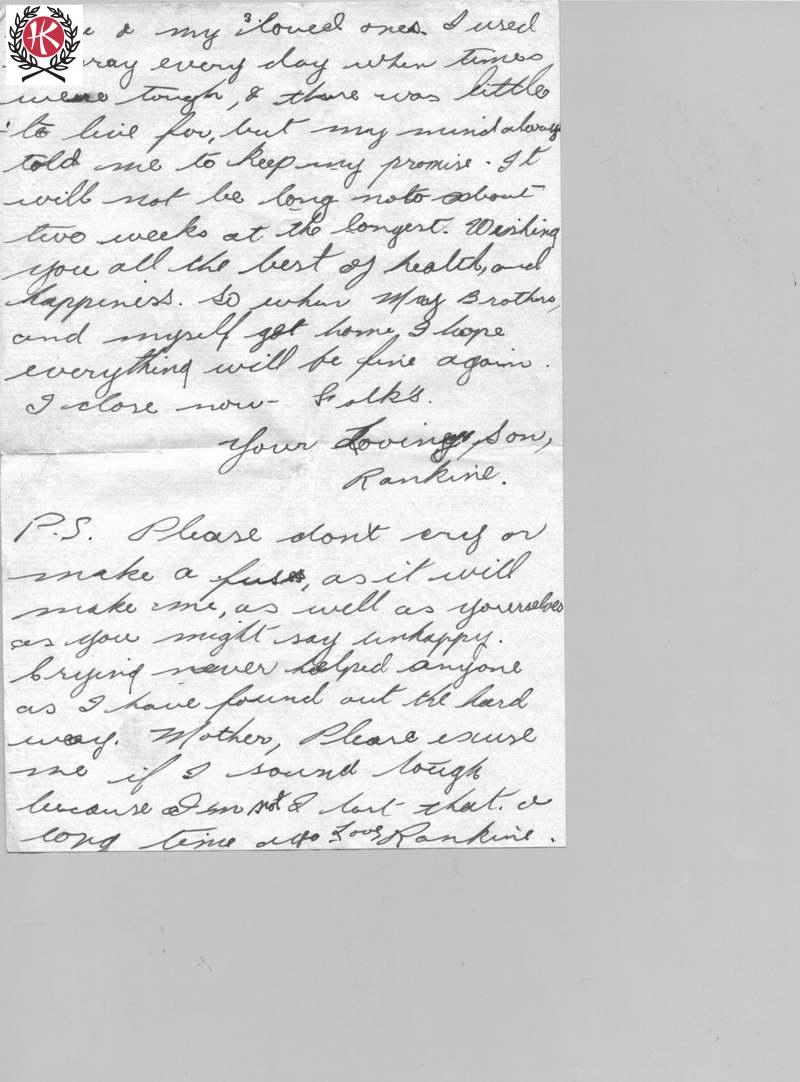 HK
& my 3 loved ones. I used
pray every day when times
were tough, & there was little
to live for, but my mind always
told me to keep my promise. It
will not be long note about
two weeks at the longest. Wishing
you all the best of health, and
happiness. So when my Brothers,
and myself get home I hope
everything will be fine again.
I close now - Folk's.
Your Loving Son,
Rankine.
P.S. Please don't cry or
make a fuss, as it will
make me, as well as yourselves
as you might say unhappy.
Crying never helped anyone
as I have found out the hard
way. Mother, Please excuse
me if I sound tough
because I'm not I lost that a
long time ago Love Rankine.